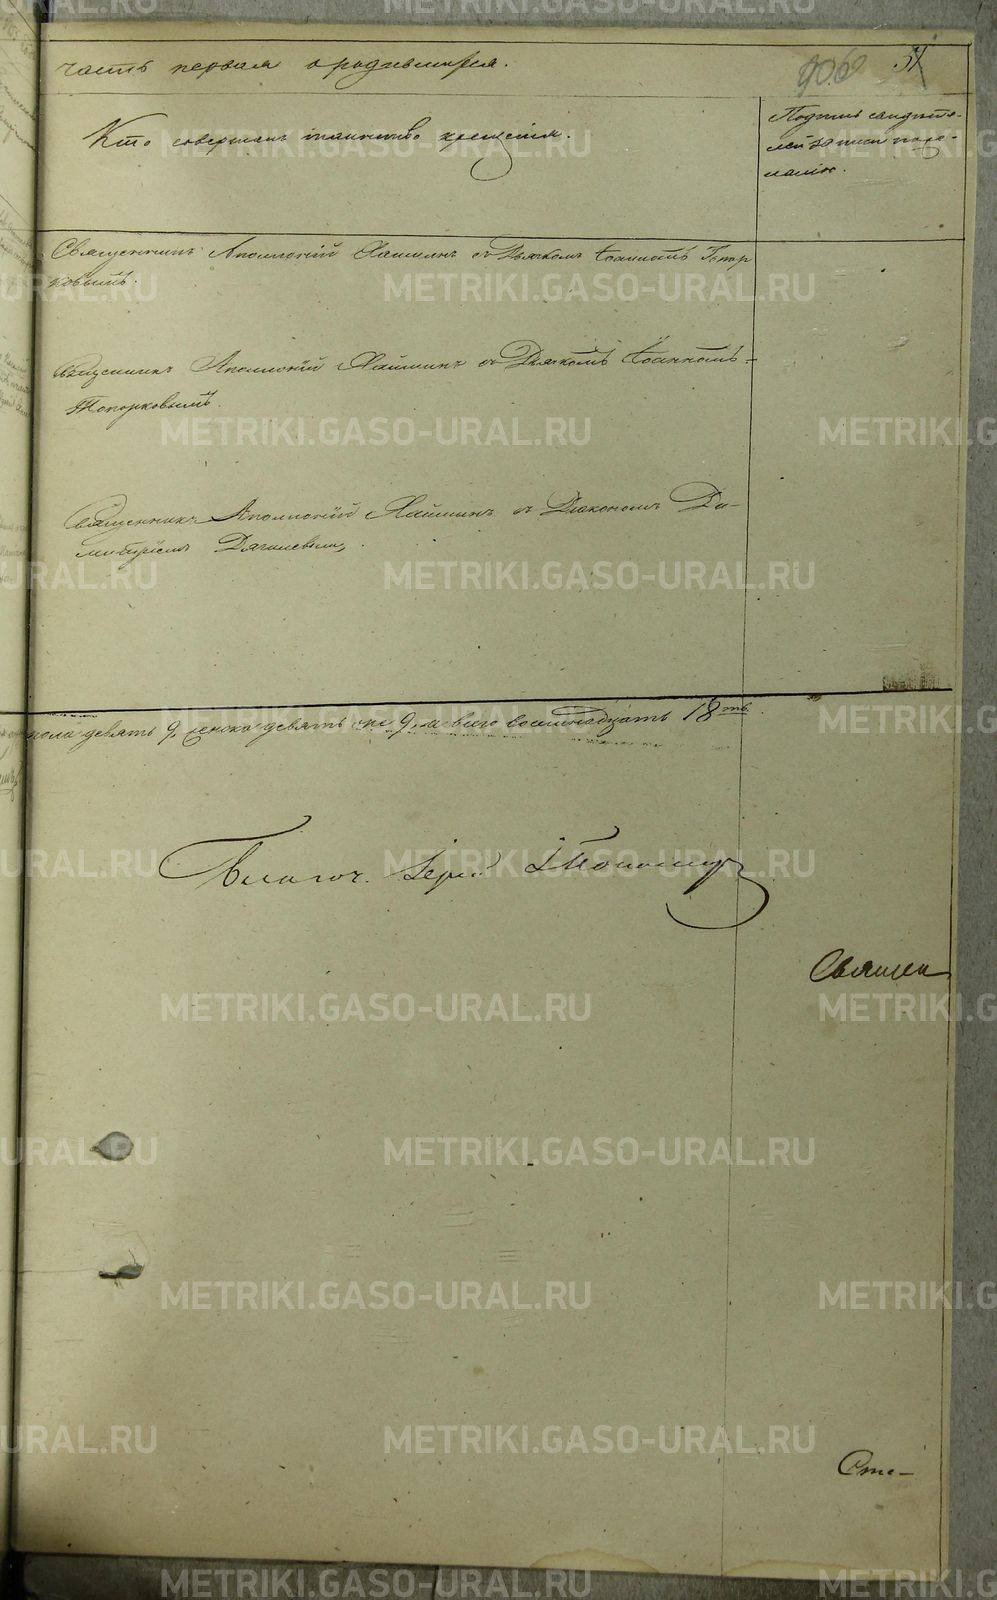 часть первая о родившихся.
906 51
Кто совершал таинство крещенія.
Подпись свидѣте-
лей записи по же-
ланію.
Священникъ Аполлоній с Дьячкомъ Іоанномъ Топор
ковымъ.
Священникъ Аполлоній съ Дьячкомъ Іоанномъ
Топорковымъ.
Священникъ Аполлоній съ Діакономъ Ди-
митріемъ Дягилевымъ.
пола девять 9, женска девять 9, всего восемнадцать 18ть.
Благоч. Іерей
Священ
Сте-
METRIKI.GASO-URAL.RU